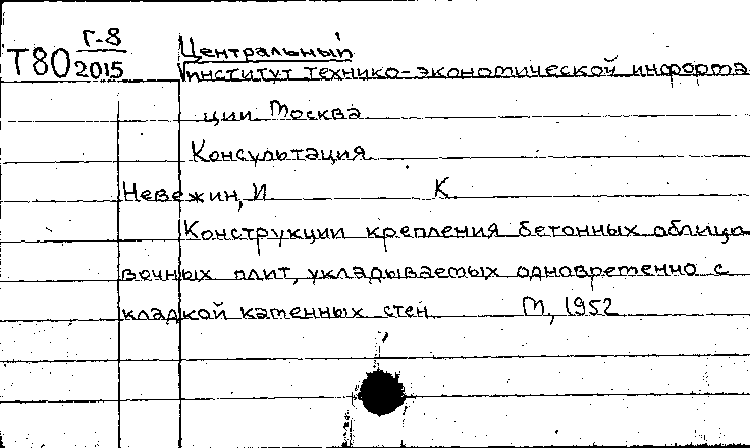 Г-8
Т80 2015
Центральный
институт технико-экономической информа
ции. Москва
Консультация
Невежин, И. К.
Конструкции крепления бетонных облицо
вочных плит, укладываемых одновременно с
кладкой каменных стен М, 1952